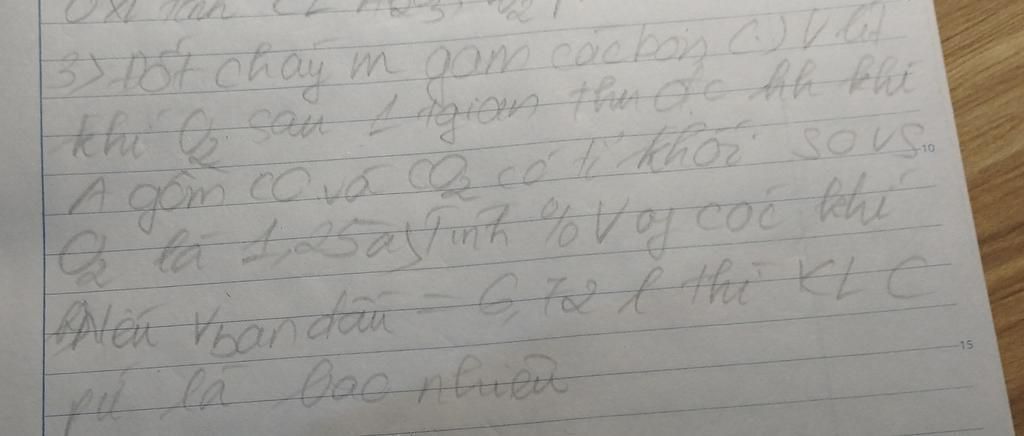 3) Đốt cháy m gam các bon (C) V lít
khí O2 sau 1 tgian thu đc hh khí
A gồm CO và CO2 có tỉ khối so vs
O2 là 1,25 a) Tính % V of các khí
b) Nếu V ban đầu = 6,72 l thì KL C
pứ là bao nhiêu